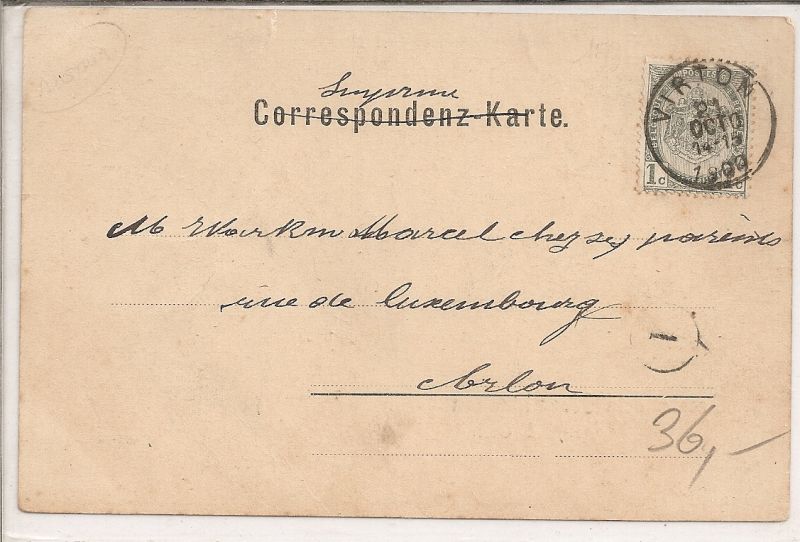 Imprimé
Correspondenz-Karte.
VIRTON
OCTO
14-15
1900
1 c
M Workm Marcel chez ses parents
rue de Luxembourg
1
Arlon
36,-